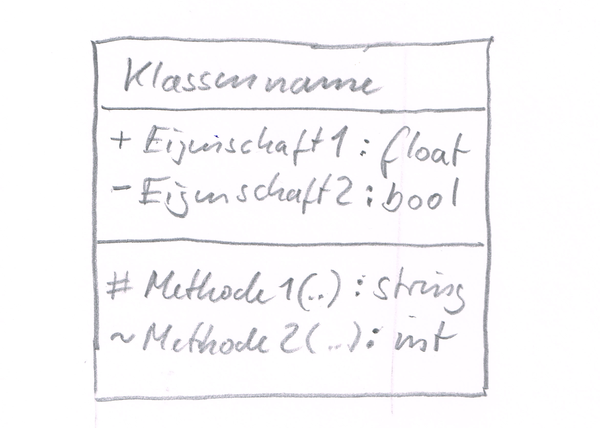 Klassenname
+ Eigenschaft1 : float
- Eigenschaft2 : bool
# Methode1(..) : string
~ Methode2(..) : int